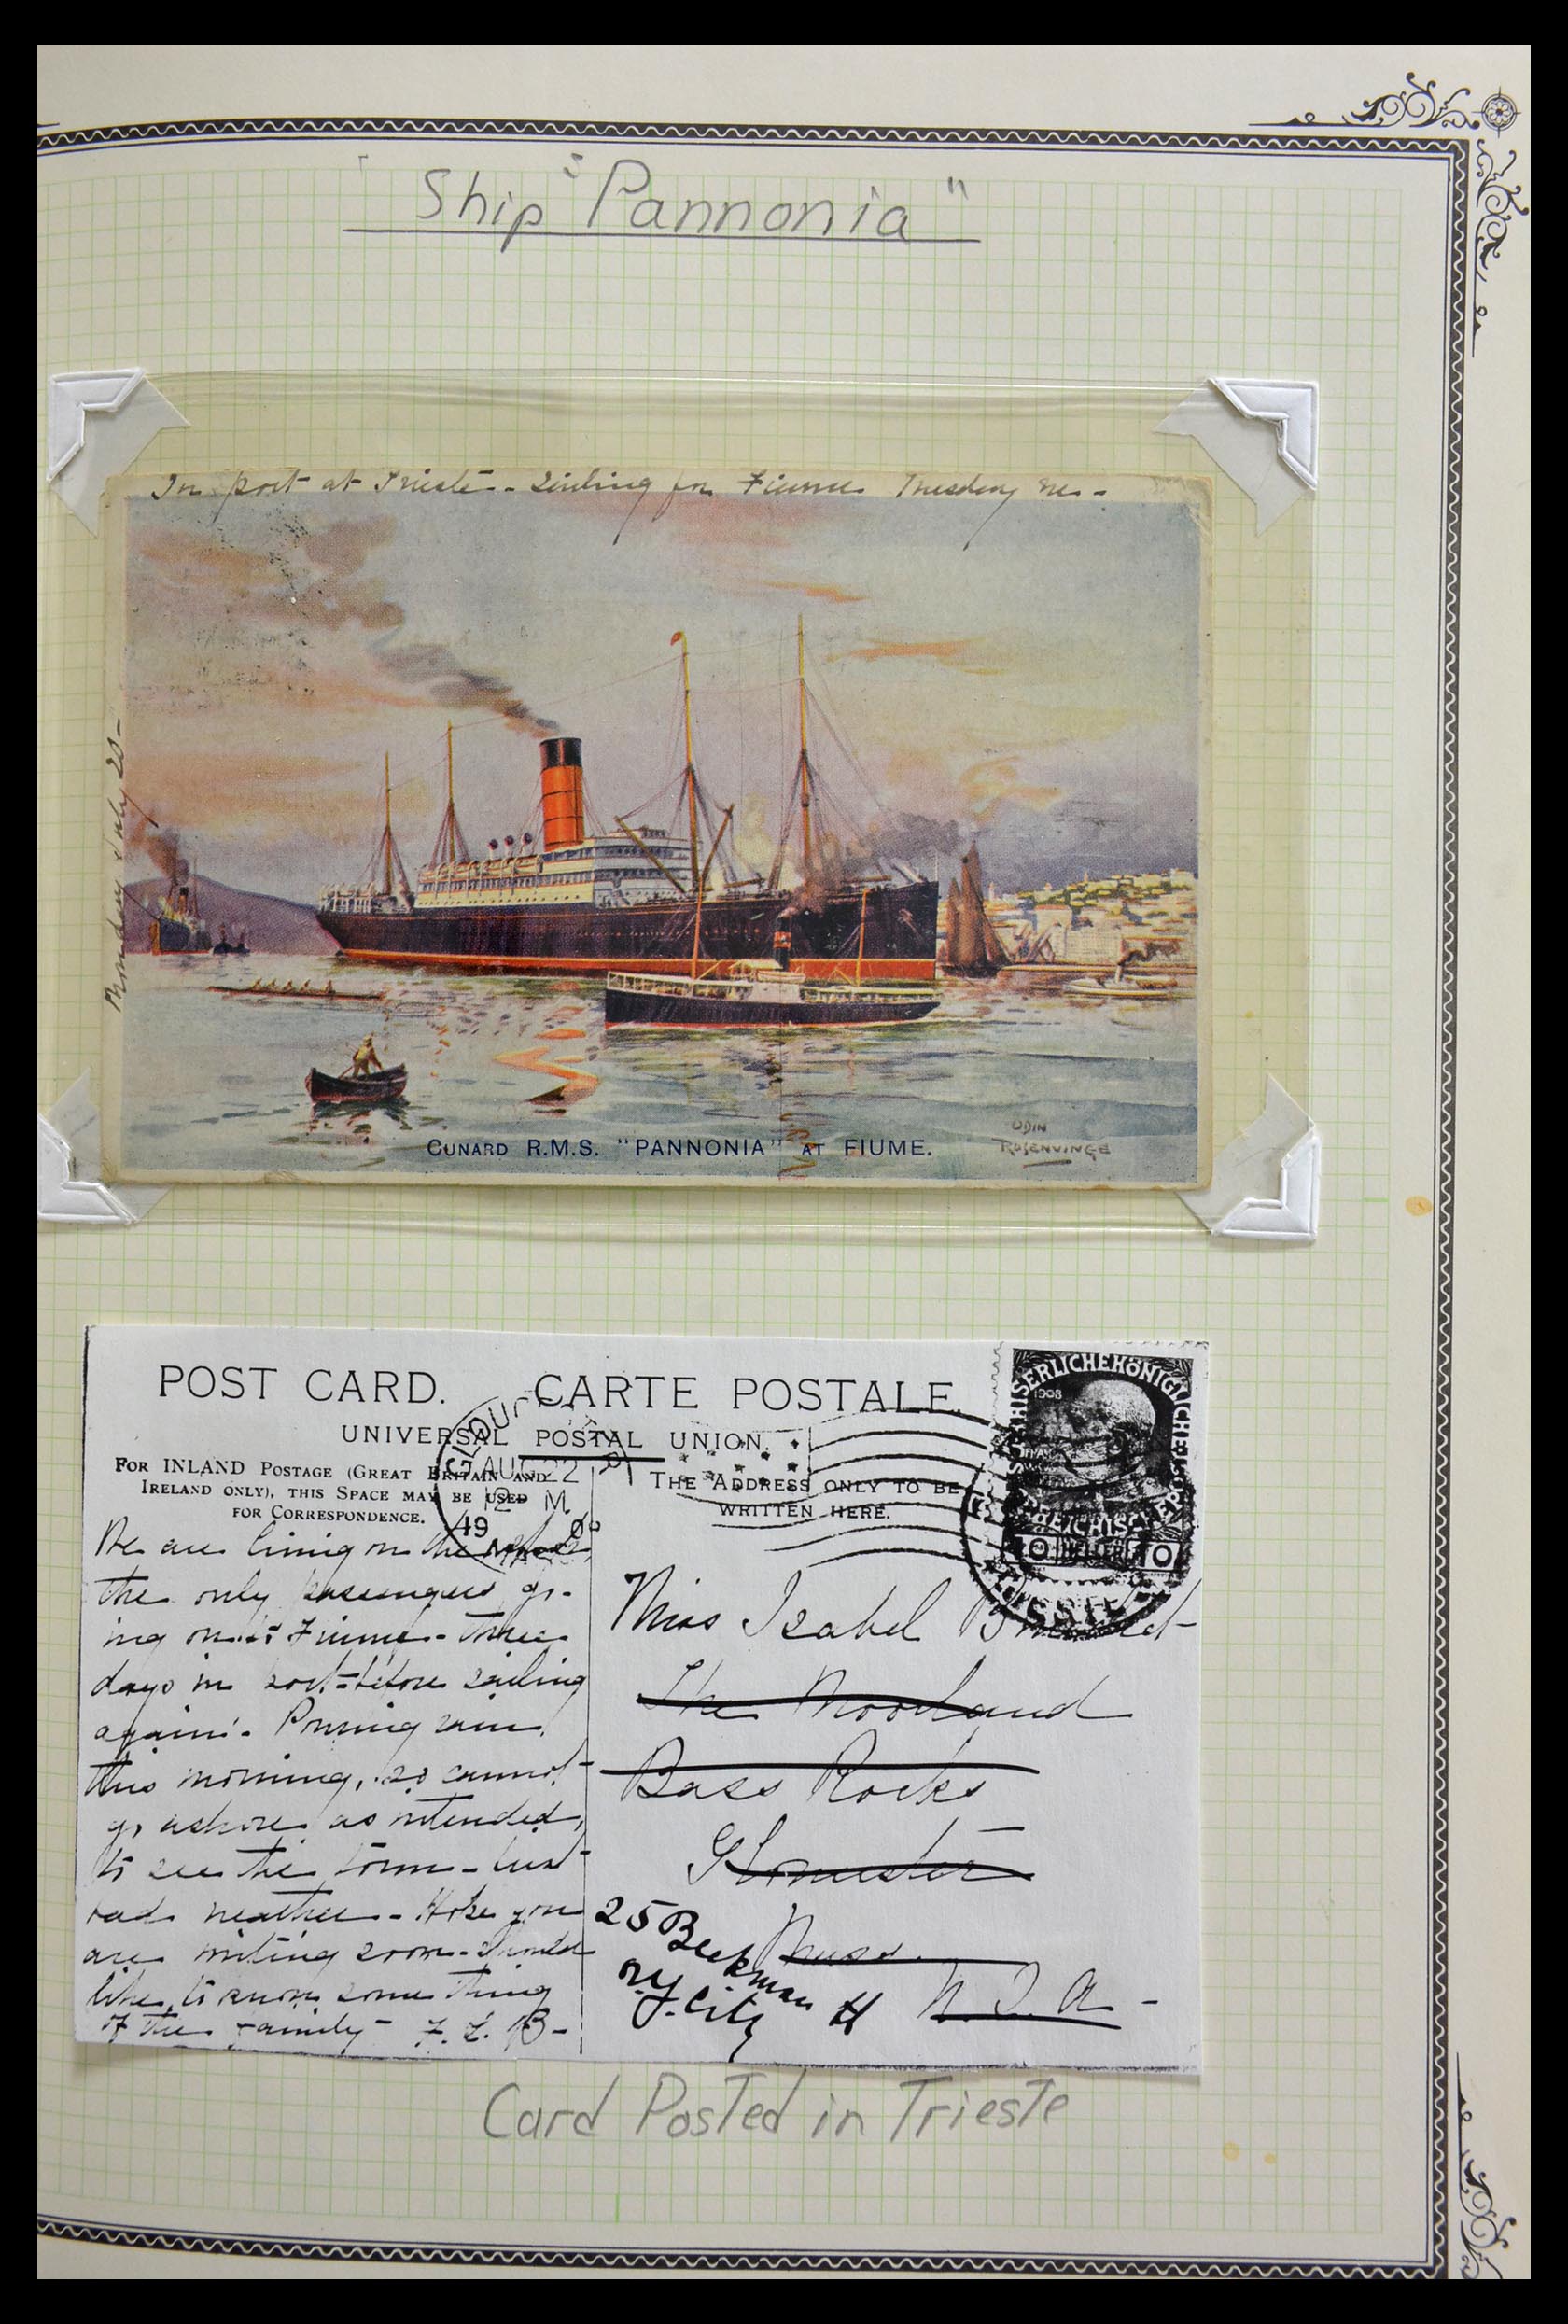 Ship "Pannonia"
In port at Trieste - Sailing for Fiume Tuesday
Monday July 20-
CUNARD R.M.S. "PANNONIA" AT FIUME.
ODIN
ROSENVINGE
POST CARD. CARTE POSTALE.
UNIVERSAL POSTAL UNION.
FOR INLAND POSTAGE (GREAT BRITAIN AND
IRELAND ONLY), THIS SPACE MAY BE USED
FOR CORRESPONDENCE.
THE ADDRESS ONLY TO BE
WRITTEN HERE.
AUG 22
12 M
19
MASS
1908
10 HELLER 10
We are living on the
the only passengers go-
ing on to Fiume - Three
days in port - before sailing
again - Pouring rain
this morning, so cannot
go ashore as intended,
to see the town -
bad weather - Hope you
are writing soon - Should
like to know something
of the family - F. L. B -
Miss Isabel
The Moorland
Bass Rocks
Gloucester
Mass.
U. S. A -
25 Beekman
N.Y. City
Card Posted in Trieste